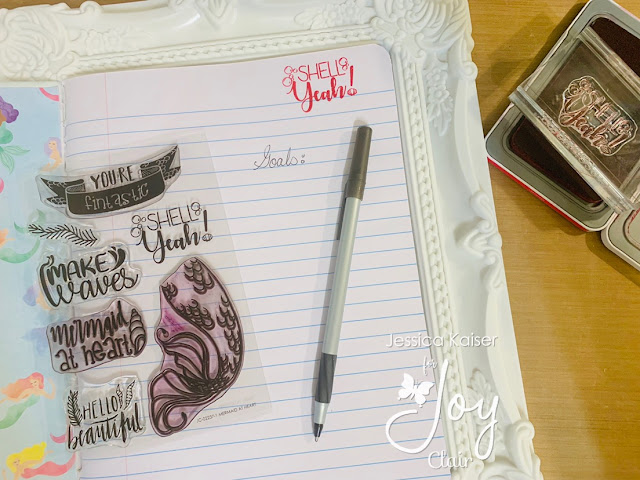 SHELL
Yeah!
Goals:
YOU'RE
fintastic
SHELL
Yeah!
MAKE
waves
mermaid
at heart
HELLO
beautiful
MERMAID AT HEART
SHELL
Yeah!
Jessica Kaiser
for
Joy
Clair